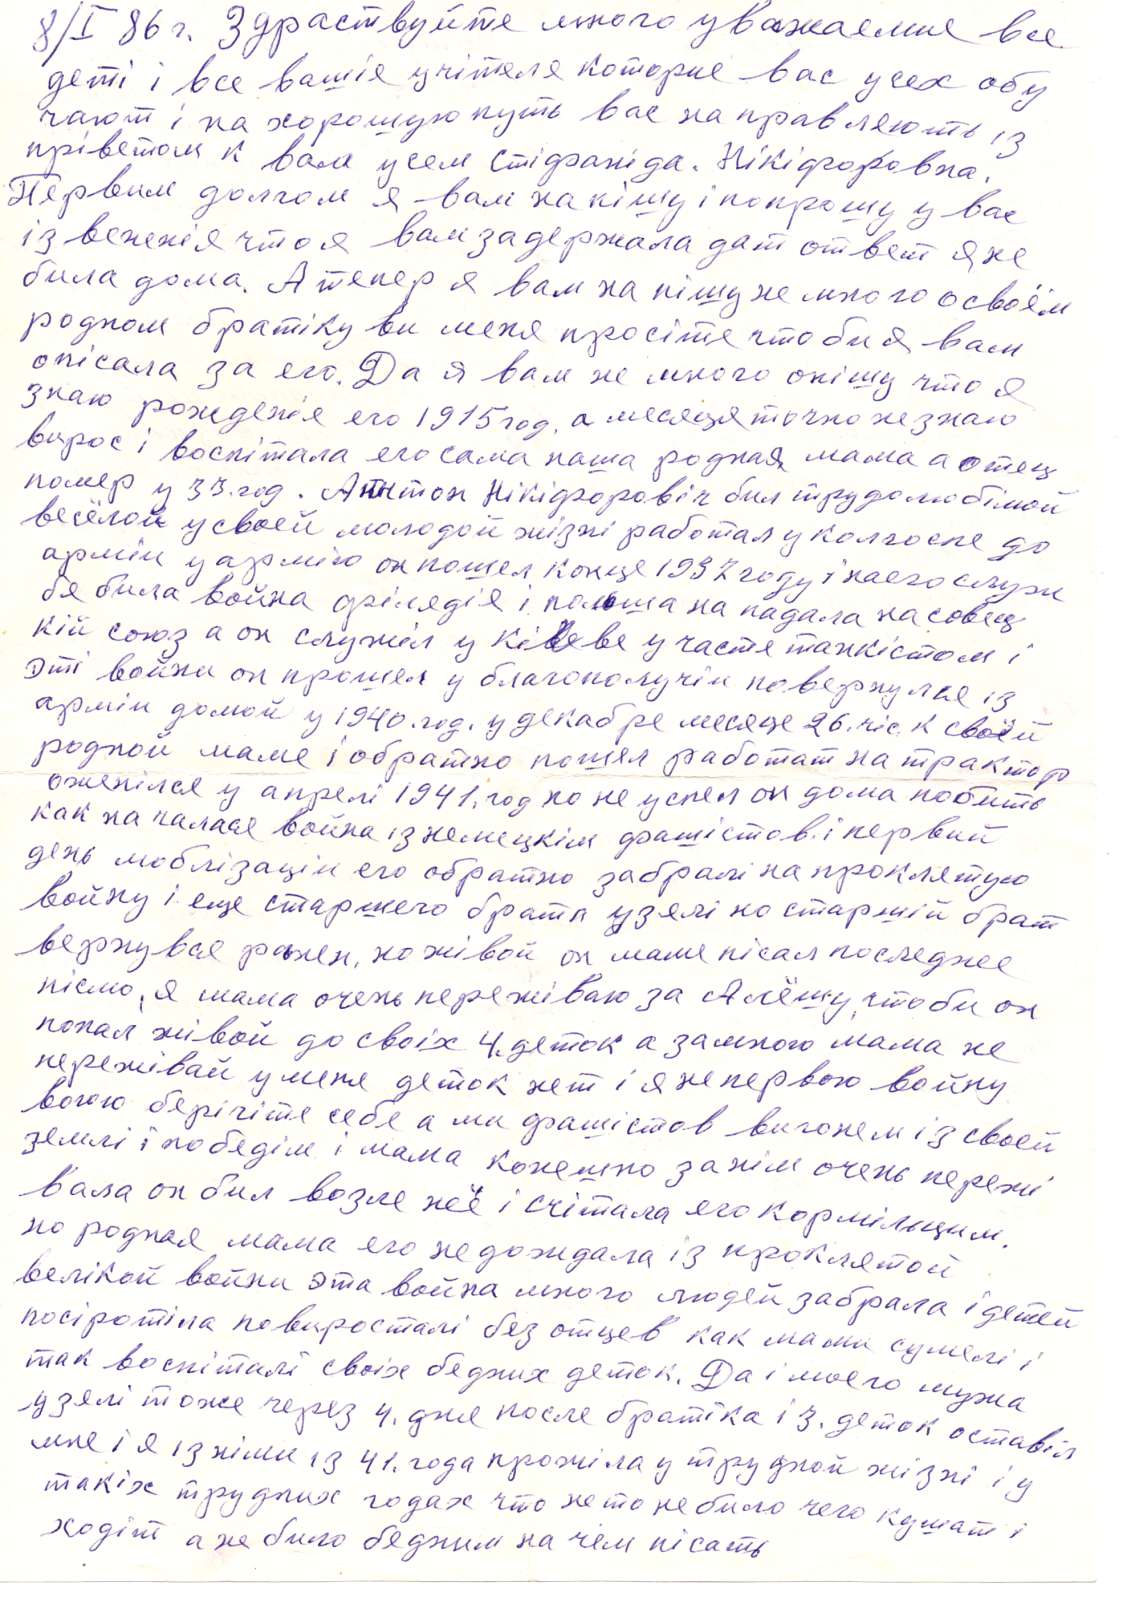 8/I 86 г. Здраствуйте много уважаемие все
деті і все вашіе учітеля которие вас усех обу
чают і на хорошую путь вас на правляють із
пріветом к вам усем Стіфаніда. Нікіфоровна.
Первим долгом я вам на пішу і попрошу у вас
ізвененія что я вам задержала дат ответ я не
била дома. А тепер я вам на пішу не много о своём
родном братіку ви меня просіте что би я вам
опісала за его. Да я вам не много опішу что я
знаю рожденія его 1915 год. а месяця точно не знаю
вирос і воспітала его сама наша родная мама а отец
помер у 33. год. Антон Нікіфоровіч бил трудолюбімой
весёлой у своей молодой жізні работал у колгоспе до
армін у армію он пошел конце 1937 году і на его служ
бя била война філядія і польша на падала на совец
кій союз а он служіл у Кіеве у часте танкістом і
эті войни он прошел у благополучін повернулся із
армін домой у 1940. год. у декабре месяце 26. чіс. к своей
родной маме і обратно пошел работат на трактор
оженілся у апрелі 1941. год но не успел он дома побить
как на палася война із немецкім фашістов. і первий
день моблізацін его обратно забралі на проклятую
войну і еще старшего брата узялі но старшій брат
вернувся ранен, но жівой он маме пісал последнее
пісмо, я мама очень переживаю за Алёшу, что би он
попал жівой до своіх 4. деток а за мною мама не
пережівай у меня деток нет і я не первою войну
воюю берігіте себе а ми фашістов вигонем із своей
землі і победім і мама конешно за нім очень пережі
вала он бил возле неё і счітала его кормільцим.
но родная мама его не дождала із проклятой
велікой войни эта война много людей забрала і детей
посіротіла повиросталі без отцев как мами сумелі і
так воспіталі своіх бедних деток. Да і моего мужа
узялі тоже через 4. дня после братіка і 3. деток оставіл
мне і я із німи із 41. года прожіла у трудной жізні і у
такіх трудних годах что не то не било чего кушат і
ходіт а не било бедним на чём пісать